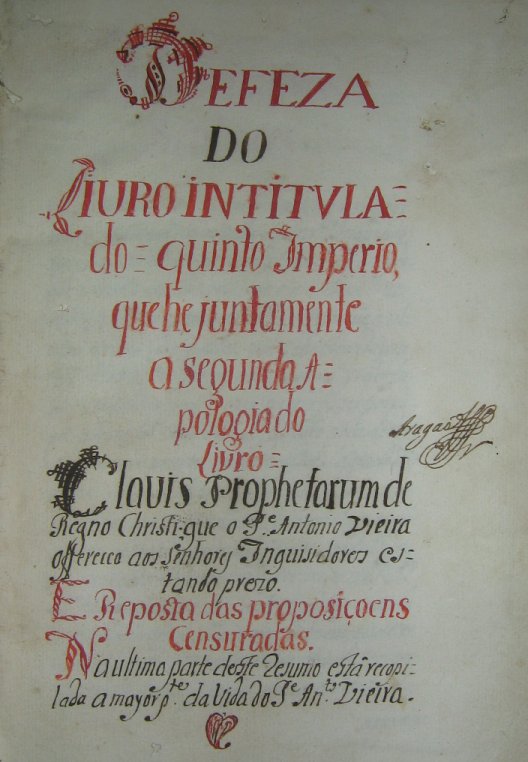 DEFEZA
DO
LIURO INTITVLA=
do= quinto Imperio,
que he juntamente
a segunda A=
pologia do
Livro=
Clavis Prophetarum de
Regno Christi que o Pe Antonio Vieira
offereceo aos senhores Inquisidores es=
tando prezo.
E Reposta das proposiçoens
Censuradas.
Na ultima parte deste Rezumo està recopi-
lada a mayor pte. da Vida do Pe Anto. Vieira.
Aragaõ